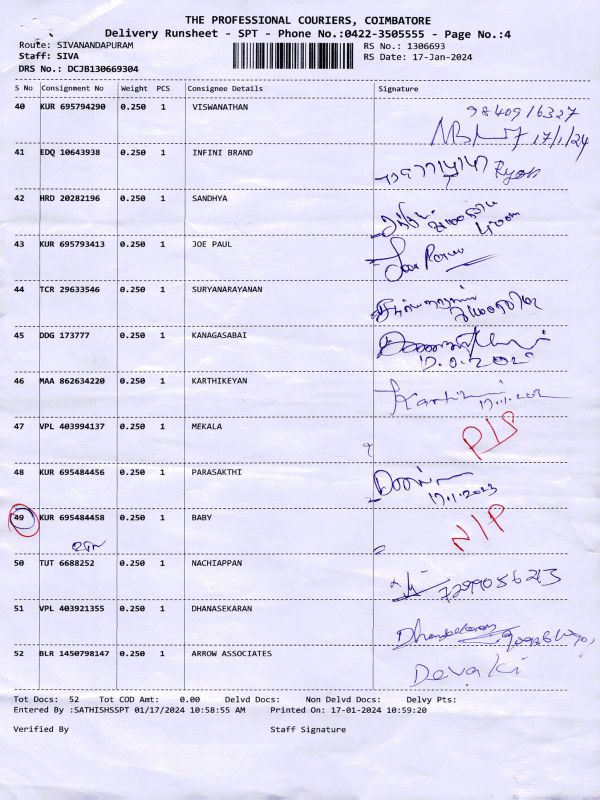 THE PROFESSIONAL COURIERS, COIMBATORE
Delivery Runsheet - SPT - Phone No.:0422-3505555 - Page No.:4
Route: SIVANANDAPURAM RS No.: 1306693
Staff: SIVA RS Date: 17-Jan-2024
DRS No.: DCJB130669304
S No Consignment No Weight PCS Consignee Details Signature
40 KUR 695794290 0.250 1 VISWANATHAN 9840916327
17/1/24
41 EDQ 10643938 0.250 1 INFINI BRAND
42 HRD 20282196 0.250 1 SANDHYA
43 KUR 695793413 0.250 1 JOE PAUL
44 TCR 29633546 0.250 1 SURYANARAYANAN
45 DDG 173777 0.250 1 KANAGASABAI
46 MAA 862634220 0.250 1 KARTHIKEYAN
47 VPL 403994137 0.250 1 MEKALA
48 KUR 695484456 0.250 1 PARASAKTHI
17.1.2023
49 KUR 695484458 0.250 1 BABY N/P
50 TUT 6688252 0.250 1 NACHIAPPAN
51 VPL 403921355 0.250 1 DHANASEKARAN Dhanasekaran
52 BLR 1450798147 0.250 1 ARROW ASSOCIATES Devaki
Tot Docs: 52 Tot COD Amt: 0.00 Delvd Docs: Non Delvd Docs: Delvy Pts:
Entered By :SATHISHSSPT 01/17/2024 10:58:55 AM Printed On: 17-01-2024 10:59:20
Verified By Staff Signature